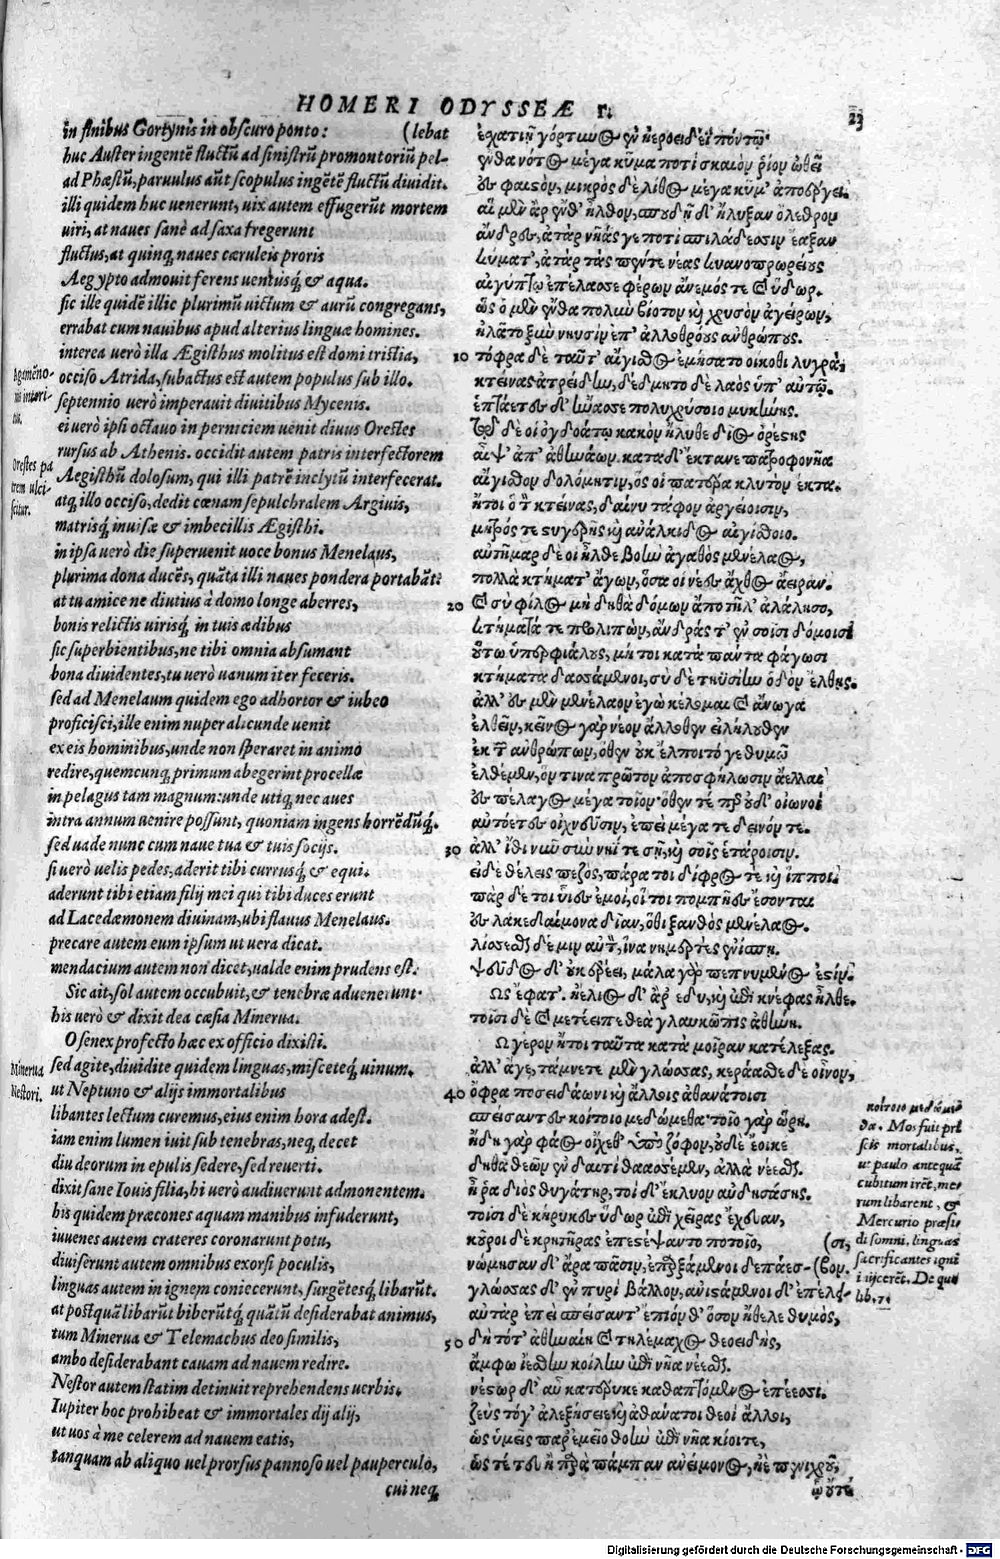 HOMERI ODYSSEÆ Γ.
23
in finibus Gortynis in obscuro ponto: (lebat
huc Auster ingentē fluctū ad sinistrū promontoriū pel-
ad Phæstū, paruulus aūt scopulus ingētē fluctū diuidit.
illi quidem huc uenerunt, uix autem effugerūt mortem
uiri, at naues sanè ad saxa fregerunt
fluctus, at quinq; naues cæruleis proris
Aegypto admouit ferens uentusq́; & aqua.
sic ille quidē illic plurimū uictum & aurū congregans,
errabat cum nauibus apud alterius linguæ homines.
interea uerò illa Ægisthus molitus est domi tristia,
occiso Atrida, subactus est autem populus sub illo.
septennio uerò imperauit diuitibus Mycenis.
ei uerò ipsi octauo in perniciem uenit diuus Orestes
rursus ab Athenis. occidit autem patris interfectorem
Aegisthū dolosum, qui illi patrē inclytū interfecerat.
atq; illo occiso, dedit cœnam sepulchralem Argiuis,
matrisq́; inuisæ & imbecillis Ægisthi.
in ipsa uerò die superuenit uoce bonus Menelaus,
plurima dona ducēs, quāta illi naues pondera portabāt:
at tu amice ne diutius à domo longe aberres,
bonis relictis uirisq́; in tuis ædibus
sic superbientibus, ne tibi omnia absumant
bona diuidentes, tu uerò uanum iter feceris.
sed ad Menelaum quidem ego adhortor & iubeo
proficisci, ille enim nuper alicunde uenit
ex eis hominibus, unde non speraret in animo
redire, quemcunq; primum abegerint procellæ
in pelagus tam magnum: unde utiq; nec aues
intra annum uenire possunt, quoniam ingens horrēdūq́;.
sed uade nunc cum naue tua & tuis socijs.
si uerò uelis pedes, aderit tibi currusq́; & equi.
aderunt tibi etiam filij mei qui tibi duces erunt
ad Lacedæmonem diuinam, ubi flauus Menelaus.
precare autem eum ipsum ut uera dicat.
mendacium autem non dicet, ualde enim prudens est.
Sic ait, sol autem occubuit, & tenebræ aduenerunt.
his uerò & dixit dea cæsia Minerua.
O senex profecto hæc ex officio dixisti.
sed agite, diuidite quidem linguas, misceteq́; uinum.
ut Neptuno & alijs immortalibus
libantes lectum curemus, eius enim hora adest.
iam enim lumen iuit sub tenebras, neq; decet
diu deorum in epulis sedere, sed reuerti.
dixit sane Iouis filia, hi uerò audiuerunt admonentem.
his quidem præcones aquam manibus infuderunt,
iuuenes autem crateres coronarunt potu,
diuiserunt autem omnibus exorsi poculis,
linguas autem in ignem coniecerunt, surgētesq́; libarūt.
at postquā libarūt biberūtq́; quātū desiderabat animus,
tum Minerua & Telemachus deo similis,
ambo desiderabant cauam ad nauem redire.
Nestor autem statim detinuit reprehendens uerbis.
Iupiter hoc prohibeat & immortales dij alij,
ut uos à me celerem ad nauem eatis,
tanquam ab aliquo uel prorsus pannoso uel pauperculo,
cui neq;
Agamēno-
nis interi-
tus.
Orestes pa
trem ulci-
scitur.
Minerua
Nestori.
ἐχατιῇ γόρτυνος ἐν ἠεροειδέϊ πόντῳ·
ἔνθα νότος μέγα κῦμα ποτὶ σκαιὸν ῥίον ὠθεῖ
ἐς φαιστὸν, μικρὸς δὲ λίθος μέγα κῦμ' ἀποέργει.
αἱ μὲν ἂρ ἔνθ' ἦλθον, σπουδῇ δ' ἤλυξαν ὄλεθρον
ἄνδρες, ἀτὰρ νῆάς γε ποτὶ σπιλάδεσσιν ἔαξαν
κύματ', ἀτὰρ τὰς πέντε νέας κυανοπρῳρείους
αἰγύπτῳ ἐπέλασσε φέρων ἄνεμός τε καὶ ὕδωρ.
ὣς ὁ μὲν ἔνθα πολὺν βίοτον καὶ χρυσὸν ἀγείρων,
ἠλᾶτο ξὺν νηυσὶν ἐπ' ἀλλοθρόους ἀνθρώπους.
10 τόφρα δὲ ταῦτ' αἴγισθος ἐμήσατο οἴκοθι λυγρά,
κτείνας ἀτρείδην, δέδμητο δὲ λαὸς ὑπ' αὐτῷ.
ἑπτάετες δ' ἤνασσε πολυχρύσοιο μυκήνης.
τῷ δέ οἱ ὀγδοάτῳ κακὸν ἤλυθε δῖος ὀρέστης
ἂψ ἀπ' ἀθηνάων. κατὰ δ' ἔκτανε πατροφονῆα
αἴγισθον δολόμητιν, ὅς οἱ πατέρα κλυτὸν ἔκτα.
ἤτοι ὁ τὸν κτείνας, δαίνυ τάφον ἀργείοισιν,
μητρός τε στυγερῆς καὶ ἀνάλκιδος αἰγίσθοιο.
αὐτῆμαρ δέ οἱ ἦλθε βοὴν ἀγαθὸς μενέλαος,
πολλὰ κτήματ' ἄγων, ὅσα οἱ νέες ἄχθος ἄειραν.
20 καὶ σὺ φίλος μὴ δηθὰ δόμων ἄπο τῆλ' ἀλάλησο,
κτήματά τε προλιπὼν, ἄνδράς τ' ἐν σοῖσι δόμοισι
οὕτω ὑπερφιάλους, μή τοι κατὰ πάντα φάγωσι
κτήματα δασσάμενοι, σὺ δὲ τηϋσίην ὁδὸν ἔλθῃς.
ἀλλ' ἐς μὲν μενέλαον ἐγὼ κέλομαι καὶ ἄνωγα
ἐλθεῖν, κεῖνος γὰρ νέον ἄλλοθεν εἰλήλουθεν
ἐκ τῶν ἀνθρώπων, ὅθεν οὐκ ἔλποιτό γε θυμῷ
ἐλθέμεν, ὅν τινα πρῶτον ἀποσφήλωσιν ἄελλαι
ἐς πέλαγος μέγα τοῖον· ὅθεν τέ περ οὐδ' οἰωνοὶ
αὐτόετες οἰχνεῦσιν, ἐπεὶ μέγα τε δεινόν τε.
30 ἀλλ' ἴθι νῦν σὺν νηΐ τε σῇ, καὶ σοῖς ἑτάροισιν.
εἰ δὲ θέλεις πεζὸς, πάρα τοι δίφρος τε καὶ ἵπποι.
πὰρ δέ τοι υἷες ἐμοὶ, οἵ τοι πομπῆες ἔσονται
ἐς λακεδαίμονα δῖαν, ὅθι ξανθὸς μενέλαος.
λίσσεσθαι δέ μιν αὐτὸν, ἵνα νημερτὲς ἐνίσπῃ.
ψεῦδος δ' οὐκ ἐρέει, μάλα γὰρ πεπνυμένος ἐστίν.
Ως ἔφατ'. ἠέλιος δ' ἄρ' ἔδυ, καὶ ἐπὶ κνέφας ἦλθε.
τοῖσι δὲ καὶ μετέειπε θεὰ γλαυκῶπις ἀθήνη.
Ω γερον ἤτοι ταῦτα κατὰ μοῖραν κατέλεξας.
ἀλλ' ἄγε, τάμνετε μὲν γλώσσας, κεράασθε δὲ οἶνον,
40 ὄφρα ποσειδάωνι καὶ ἄλλοις ἀθανάτοισι
σπείσαντες κοίτοιο μεδώμεθα· τοῖο γὰρ ὥρη.
ἤδη γὰρ φάος οἴχεθ' ὑπὸ ζόφον, οὐδὲ ἔοικε
δηθὰ θεῶν ἐν δαιτὶ θαασσέμεν, ἀλλὰ νέεσθαι.
ἦ ῥα διὸς θυγάτηρ, τοὶ δ' ἔκλυον αὐδησάσης.
τοῖσι δὲ κήρυκες ὕδωρ ἐπὶ χεῖρας ἔχευαν,
κοῦροι δὲ κρητῆρας ἐπεστέψαντο ποτοῖο, (σι,
νώμησαν δ' ἄρα πᾶσιν, ἐπαρξάμενοι δεπάεσ- (βον.
γλώσσας δ' ἐν πυρὶ βάλλον, ἀνιστάμενοι δ' ἐπέλει-
αὐτὰρ ἐπεὶ σπεῖσαντ' ἔπιόν θ' ὅσον ἤθελε θυμὸς,
50 δὴ τότ' ἀθηναίη καὶ τηλέμαχος θεοειδὴς,
ἄμφω ἱέσθην κοίλην ἐπὶ νῆα νέεσθαι.
νέστωρ δ' αὖ κατέρυκε καθαπτόμενος ἐπέεσσι.
ζεὺς τόγ' ἀλεξήσειε καὶ ἀθάνατοι θεοὶ ἄλλοι,
ὡς ὑμεῖς παρ' ἐμεῖο θοὴν ἐπὶ νῆα κίοιτε,
ὥς τέ τευ ἢ παρὰ πάμπαν ἀνείμονος, ἠὲ πενιχροῦ,
ᾧ οὔτε
κοίτοιο μεδώμε
θα. Mos fuit pri
scis mortalibus,
ut paulo antequā
cubitum irēt, mer
rum libarent, &
Mercurio præsi
di somni, linguas
sacrificantes igni
inijcerēt. De quo
lib. 7.
Digitalisierung gefördert durch die Deutsche Forschungsgemeinschaft - DFG